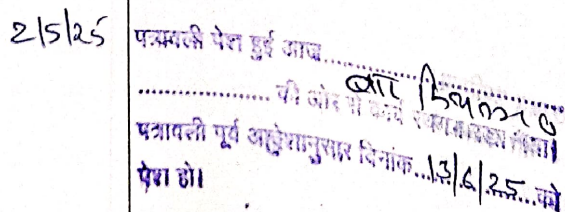 2/5/25 पत्रावली पेश हुई आज....................
.................... की ओर से कार्य स्थगन
पत्रावली पूर्व आदेशानुसार दिनांक...13/6/25...को
पेश हो।